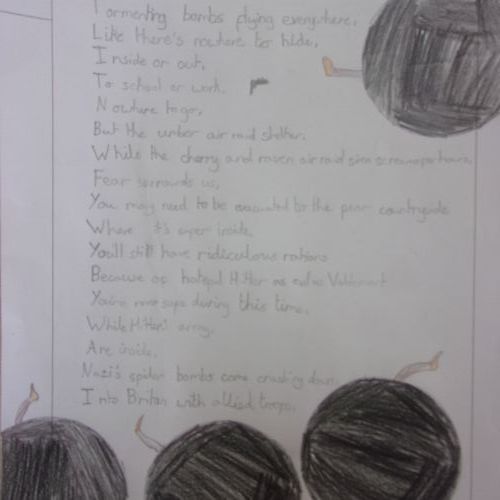 Tormenting bombs flying everywhere,
Like there's nowhere to hide,
Inside or out,
To school or work.
Nowhere to go,
But the umber air raid shelter.
While the cherry and raven air raid siren screams for hours,
Fear surrounds us,
You may need to be evacuated to the pear countryside
Where it's super inside
You'll still have ridiculous rations
Because of hateful Hitler as evil as Voldemort
You're never safe during this time,
While Hitler's army,
Are inside,
Nazi's spider bombs come crashing down
Into Britan with allied troops.